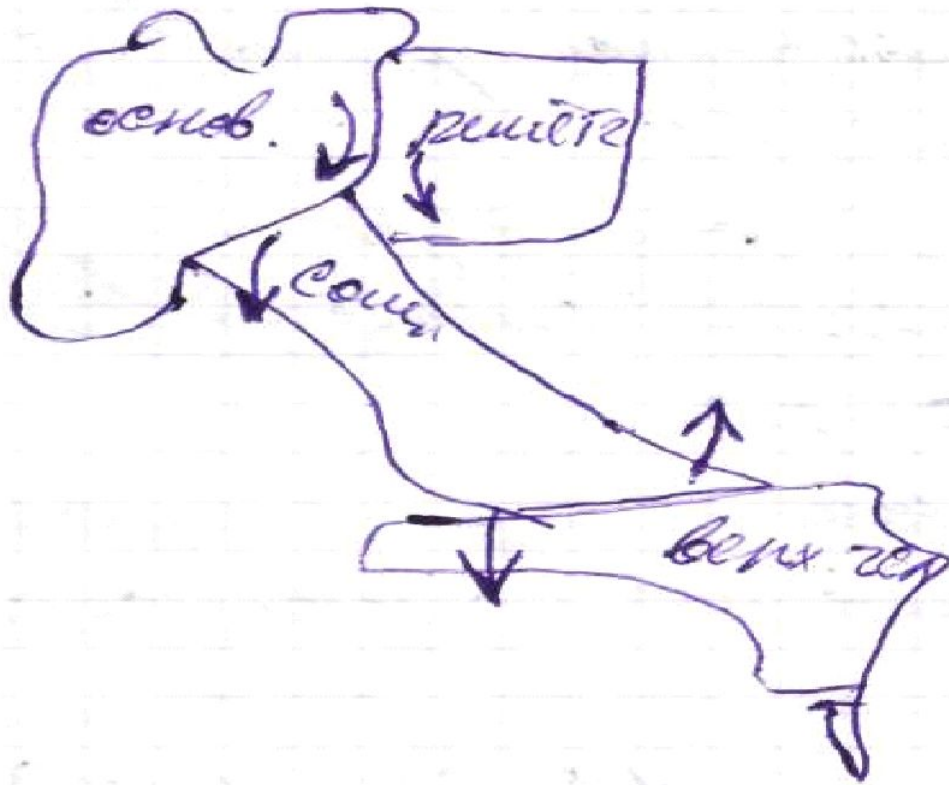 основ.
решётч
сошн.
верх. чел